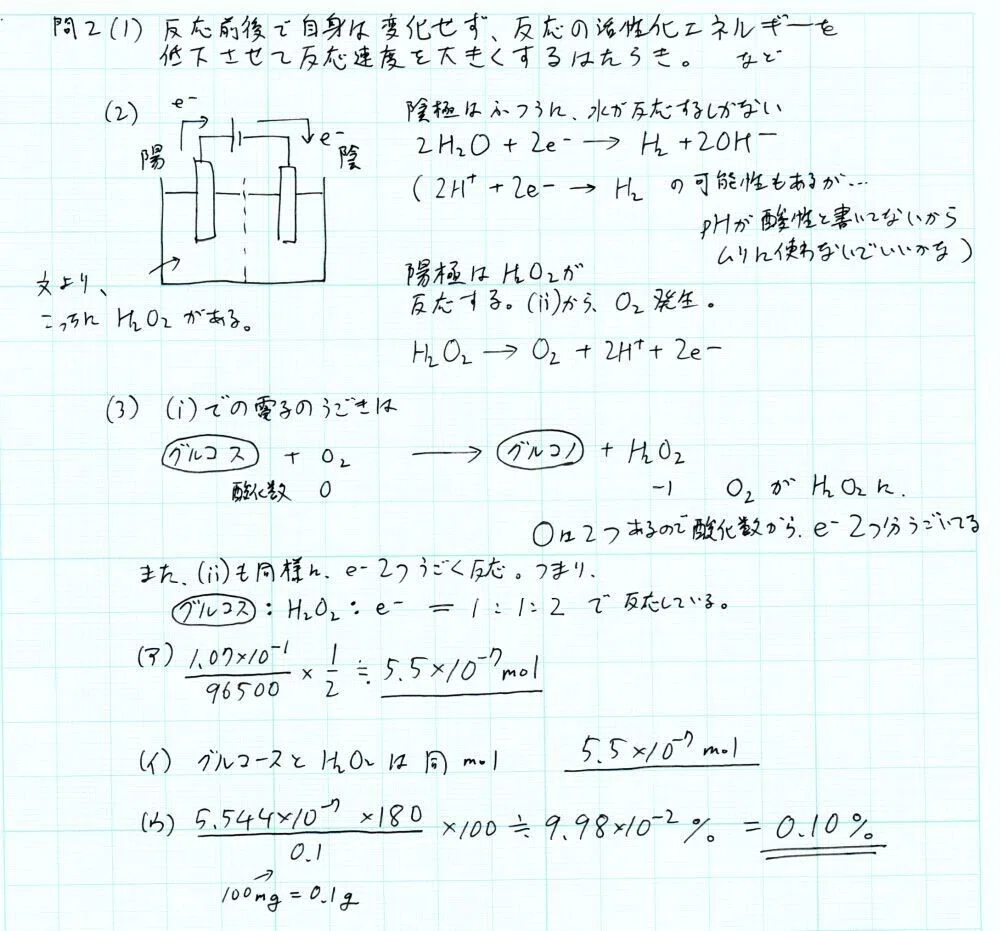 問2 (1) 反応前後で自身は変化せず、反応の活性化エネルギーを
低下させて反応速度を大きくするはたらき。 など
(2)
e-
e-
陽
陰
文より、
こっちに H2O2 がある。
陰極はふつうに、水が反応するしかない
2H2O + 2e- → H2 + 2OH-
(2H+ + 2e- → H2 の可能性もあるが…
pHが酸性と書いてないから
ムリに使わないでいいかな)
陽極は H2O2が
反応する。(ii)から、O2 発生。
H2O2 → O2 + 2H+ + 2e-
(3) (i)での電子のうごきは
グルコース + O2 → グルコノ + H2O2
酸化数 0 -1 O2 が H2O2 に、
Oは2つあるので酸化数から、e- 2つ分うごいてる
また、(ii)も同様に、e- 2つうごく反応。つまり、
グルコース : H2O2 : e- = 1 : 1 : 2 で 反応している。
(ア) 1.07×10^-1 / 96500 × 1/2 ≒ 5.5×10^-7 mol
(イ) グルコースと H2O2 は 同 mol 5.5×10^-7 mol
(ウ) 5.544×10^-7 ×180 / 0.1 ×100 ≒ 9.98×10^-2 % = 0.10%
100mg = 0.1g